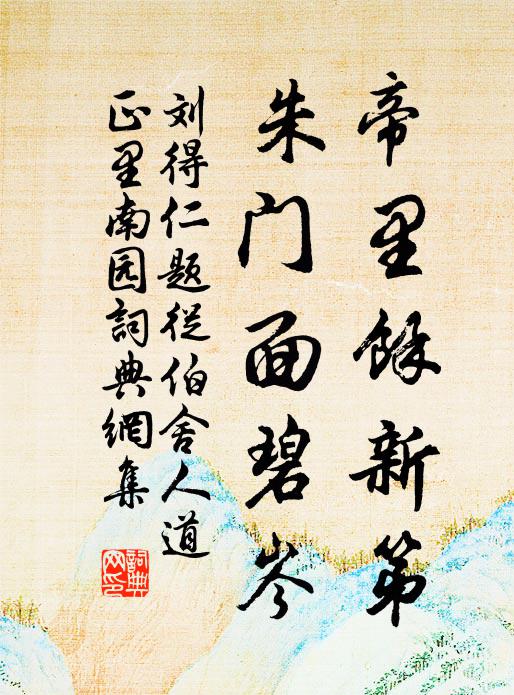 帝里餘新第
朱门面碧岑
刘得仁题從伯舍人道
正里南园詞典網集
詞典
网印